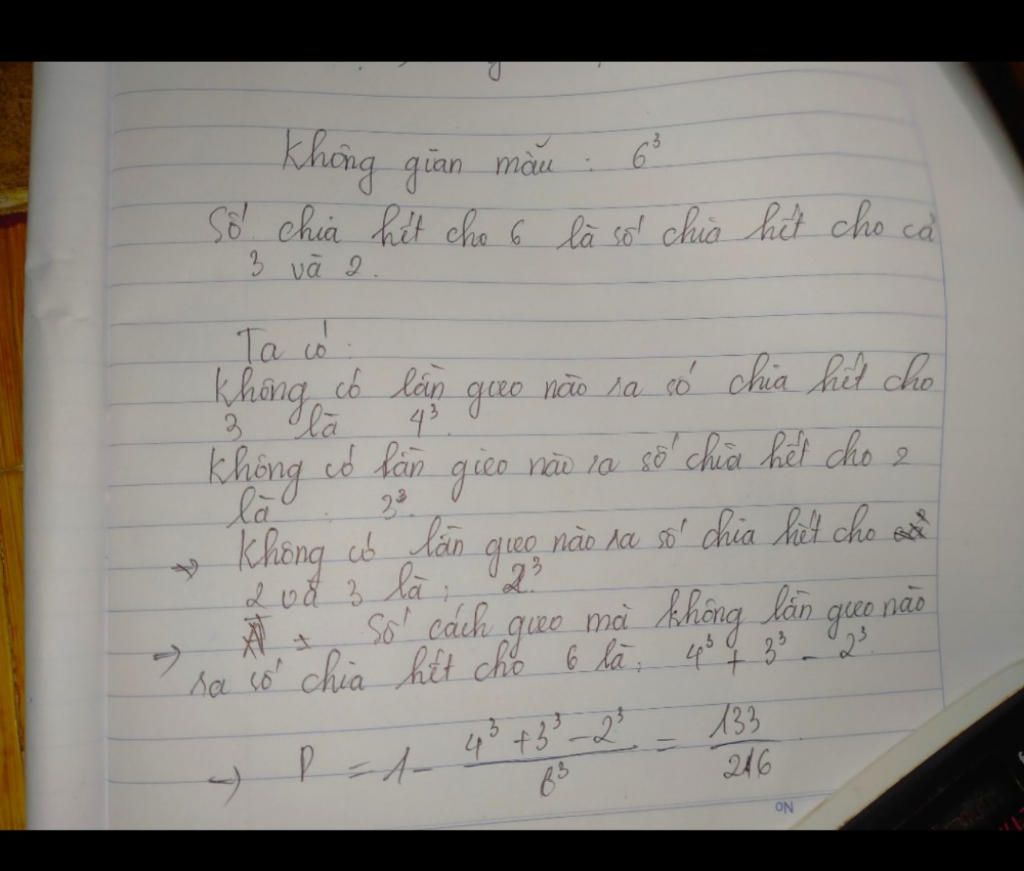 Không gian mẫu : 6³
Số chia hết cho 6 là số chia hết cho cả
3 và 2.
Ta có :
Không có lần gieo nào ra số chia hết cho
3 là 4³.
Không có lần gieo nào ra số chia hết cho 2
là 3³.
→ Không có lần gieo nào ra số chia hết cho
2 và 3 là : 2³.
→ Số cách gieo mà không lần gieo nào
ra số chia hết cho 6 là : 4³ + 3³ - 2³.
→ P = 1 - (4³ + 3³ - 2³)/6³ = 133/216
NO